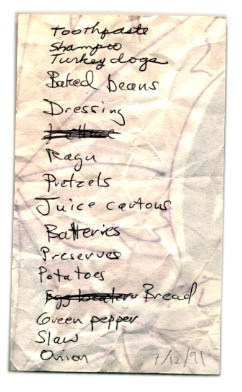 Toothpaste
Shampoo
Turkey dogs
Baked beans
Dressing
Ragu
Pretzels
Juice cartons
Batteries
Preserves
Potatoes
Bread
Green pepper
Slaw
Onion 7/12/91